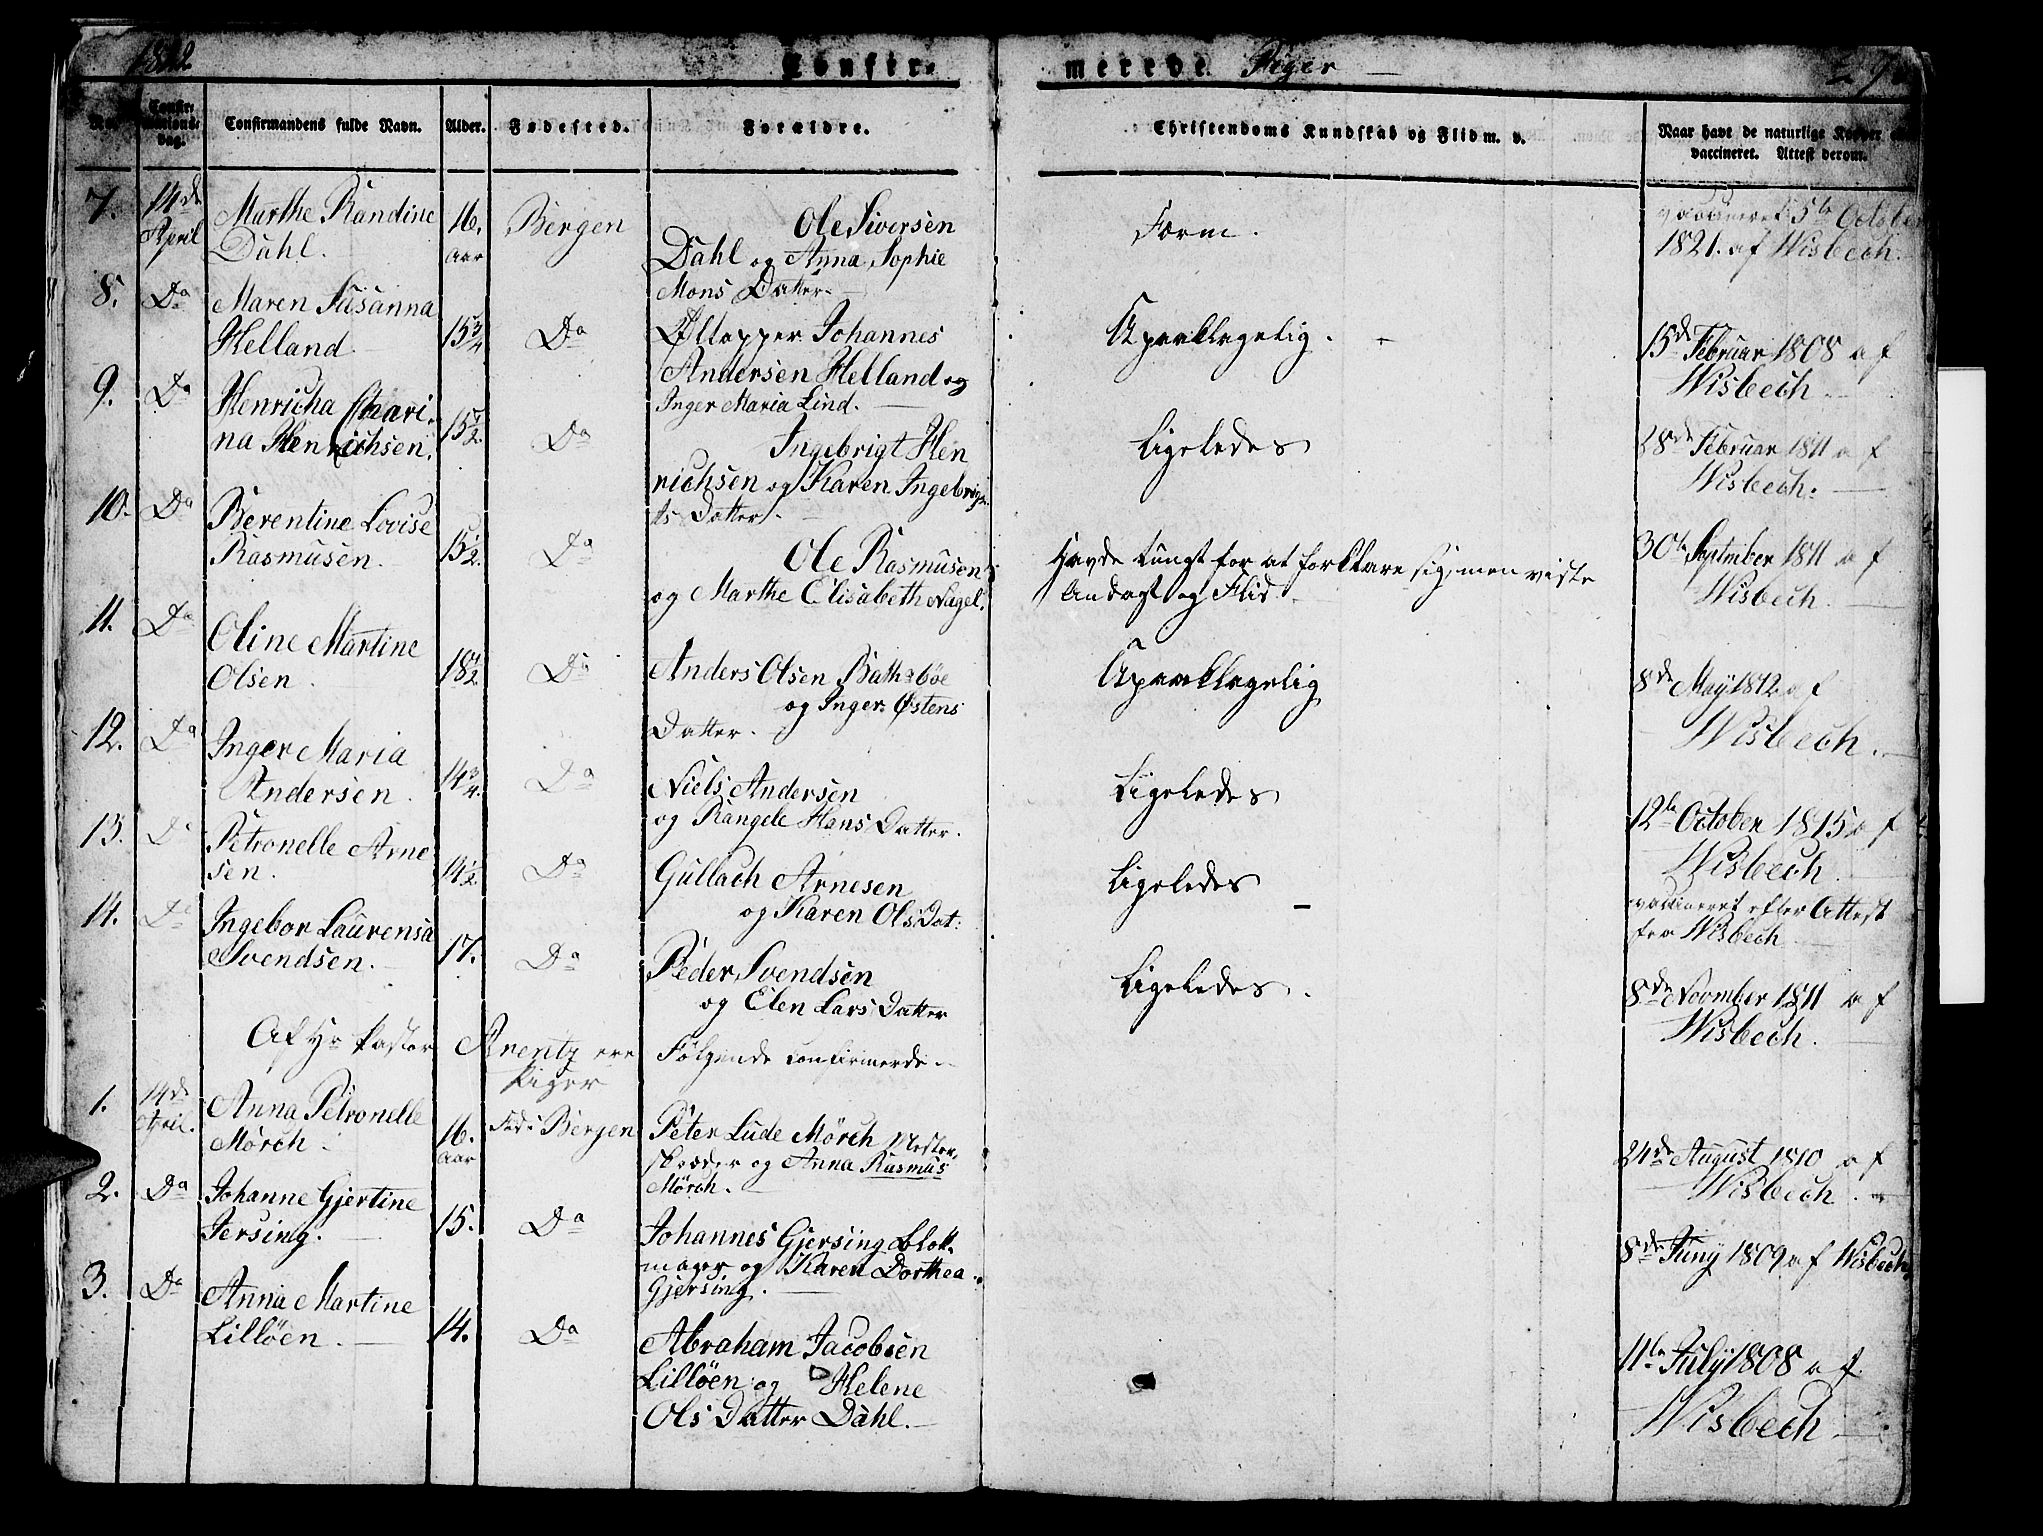 1822
Confir-
merede Piger
No.
Confirmations-
dag.
Confirmandens fulde Navn.
Alder.
Fødested.
Forældre.
Christendoms Kundskab og Flid m. v.
Naar havt de naturlige Kopper eller
vaccineret. Attest derom.
7. 14de April
Marthe Randine
Dahl.
16. aar
Bergen
Ole Siversen
Dahl og Anna Sophie
Mons Datter.
vaccineret 5te October
1821. af Wisbech.
8. Do
Maren Susanna
Helland
15 3/4
Do
Øltapper Johannes
Andersen Helland og
Inger Maria Lind.
Upaaklagelig.
15de Februar 1808 af
Wisbech.
9. Do
Henricha Chari-
na Henrichsen.
15 1/2.
Do
Ingebrigt Hen
richsen og Karen Ingebrig-
ts Datter.
Ligeledes
28de Februar 1811 af
Wisbech.
10. Do
Berentine Lovise
Rasmusen.
15 1/2.
Do
Ole Rasmusen
og Marthe Elisabeth Nagel.
Havde tungt for at forklare sig, men viste
Andagt og Flid.
30te September 1811 af
Wisbech.
11. Do
Oline Martine
Olsen.
18 1/2.
Do
Anders Olsen
og Inger Østens
Datter.
Upaaklagelig
8de May 1812 af
Wisbech.
12. Do
Inger Maria
Andersen.
14 3/4.
Do
Niels Andersen
og Rangele Hans Datter.
Ligeledes
12te October 1815 af
Wisbech.
13. Do
Petronelle Arne
sen.
14 1/2.
Do
Gullach Arnesen
og Karen Ols Dat:
Ligeledes
vaccineret efter Attest
fra Wisbech
14. Do
Ingebor Laurensa
Svendsen.
17.
Do
Peder Svendsen
og Elen Lars Datter
Ligeledes.
8de Novmber 1811 af
Wisbech.
Af Hr Pastor Arentz ere Følgende confirmerde
Piger
1. 14de April.
Anna Petronelle
Mørch
16. aar
Fød i Bergen
Peter Lude Mörch Mester
skræder og Anna Rasmus
Mörch.
24de August 1810 af
Wisbech.
2. Do
Johanne Gjertine
Jersing.
15.
Do
Johannes Gjersing Blok-
mager og Karen Dorthea
Gjersing.
8de Juny 1809 af Wisbech
3. Do
Anna Martine
Lillöen.
14.
Do
Abraham Jacobsen
Lillöen og Helene
Ols Datter Dahl.
11te July 1808 af
Wisbech